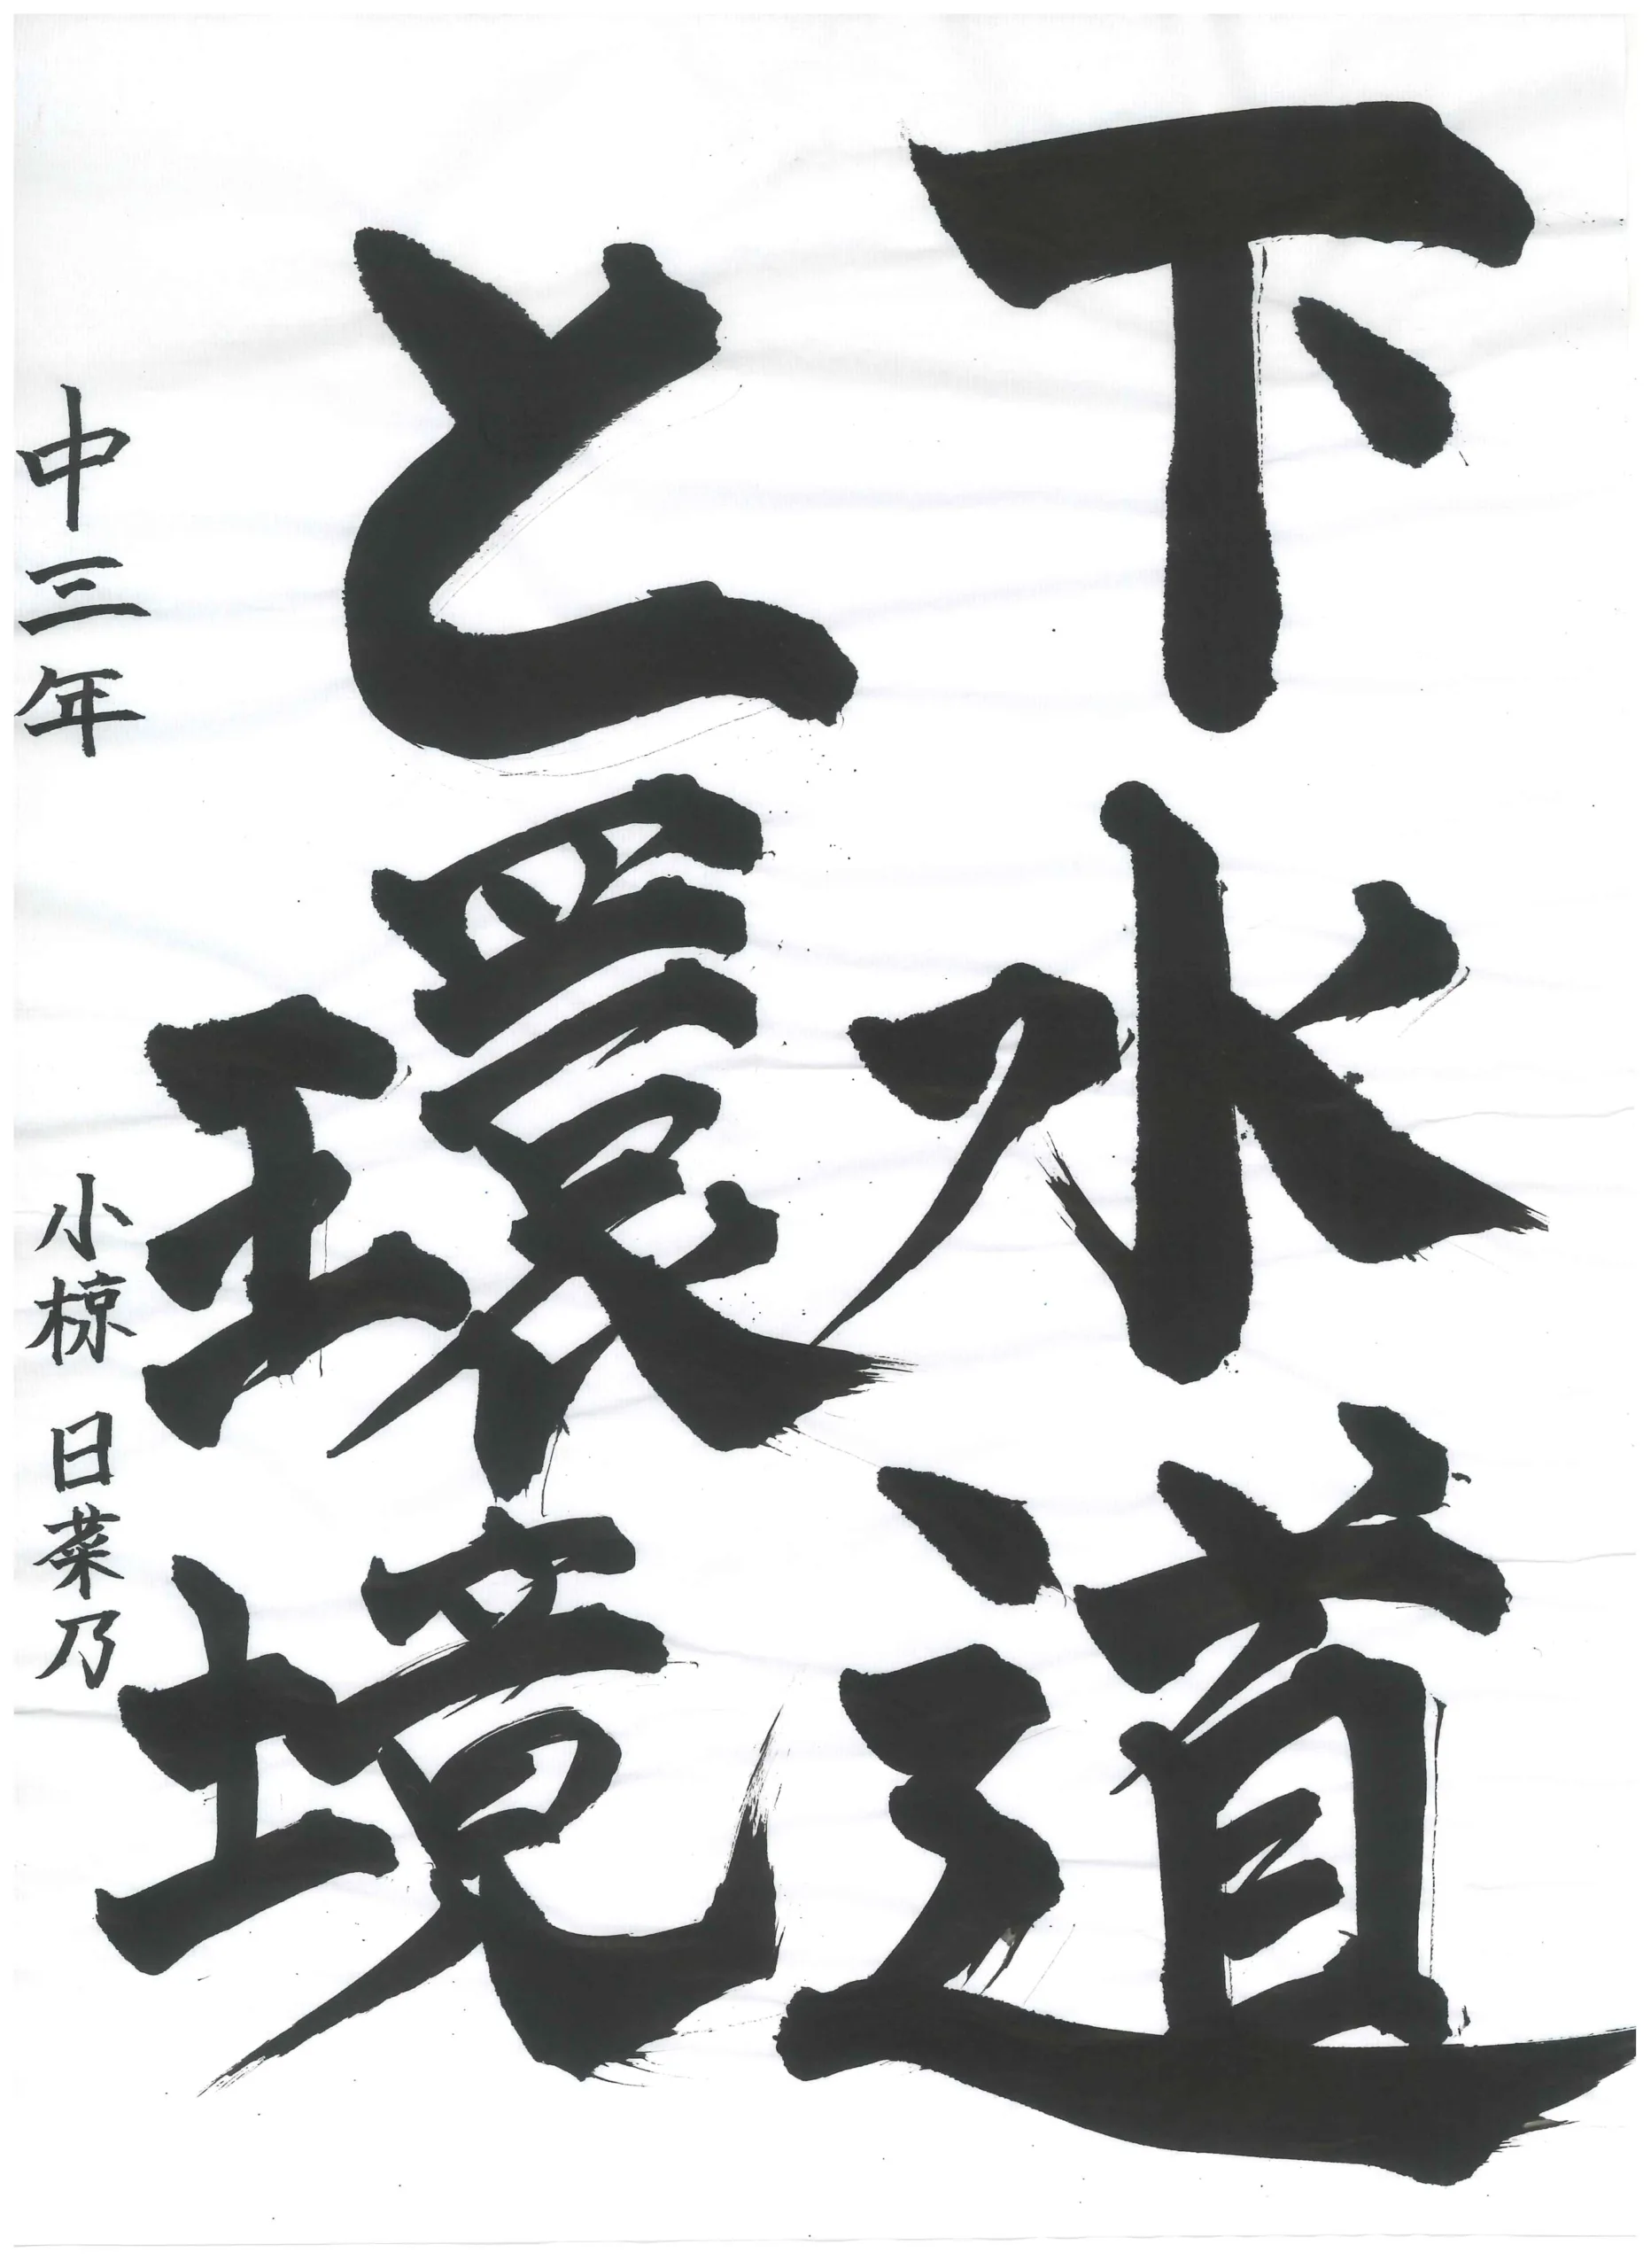 下水道
と環境
中三年 小椋 日菜乃